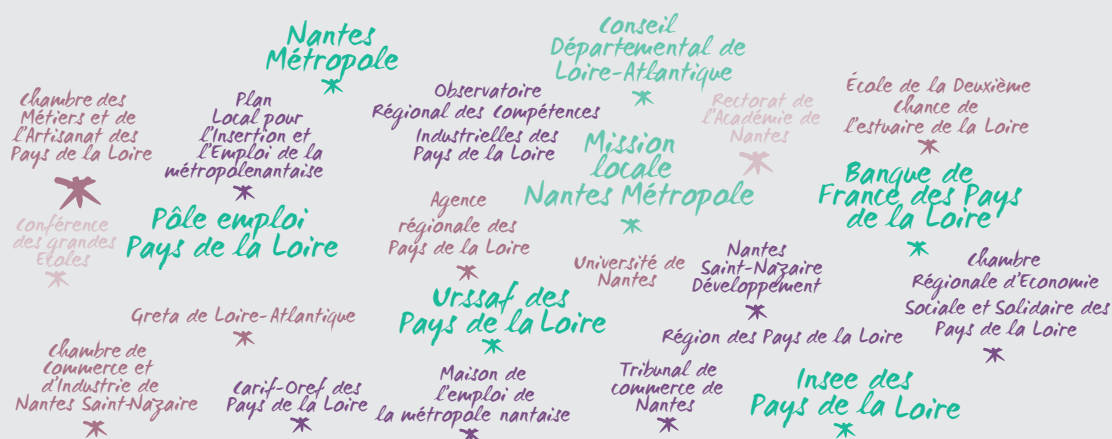 Nantes
Métropole
Conseil
Départemental de
Loire-Atlantique
Chambre des
Métiers et de
l'Artisanat des
Pays de la Loire
Plan
Local pour
l'Insertion et
l'Emploi de la
métropolenantaise
Observatoire
Régional des Compétences
Industrielles des
Pays de la Loire
Rectorat de
l'Académie de
Nantes
École de la Deuxième
Chance de
l'estuaire de la Loire
Mission
locale
Nantes Métropole
Banque de
France des Pays
de la Loire
Conférence
des grandes
Ecoles
Pôle emploi
Pays de la Loire
Agence
régionale des
Pays de la Loire
Université de
Nantes
Nantes
Saint-Nazaire
Développement
Chambre
Régionale d'Economie
Sociale et Solidaire des
Pays de la Loire
Greta de Loire-Atlantique
Urssaf des
Pays de la Loire
Région des Pays de la Loire
Chambre de
Commerce et
d'Industrie de
Nantes Saint-Nazaire
Carif-Oref des
Pays de la Loire
Maison de
l'emploi de
la métropole nantaise
Tribunal de
commerce de
Nantes
Insee des
Pays de la Loire